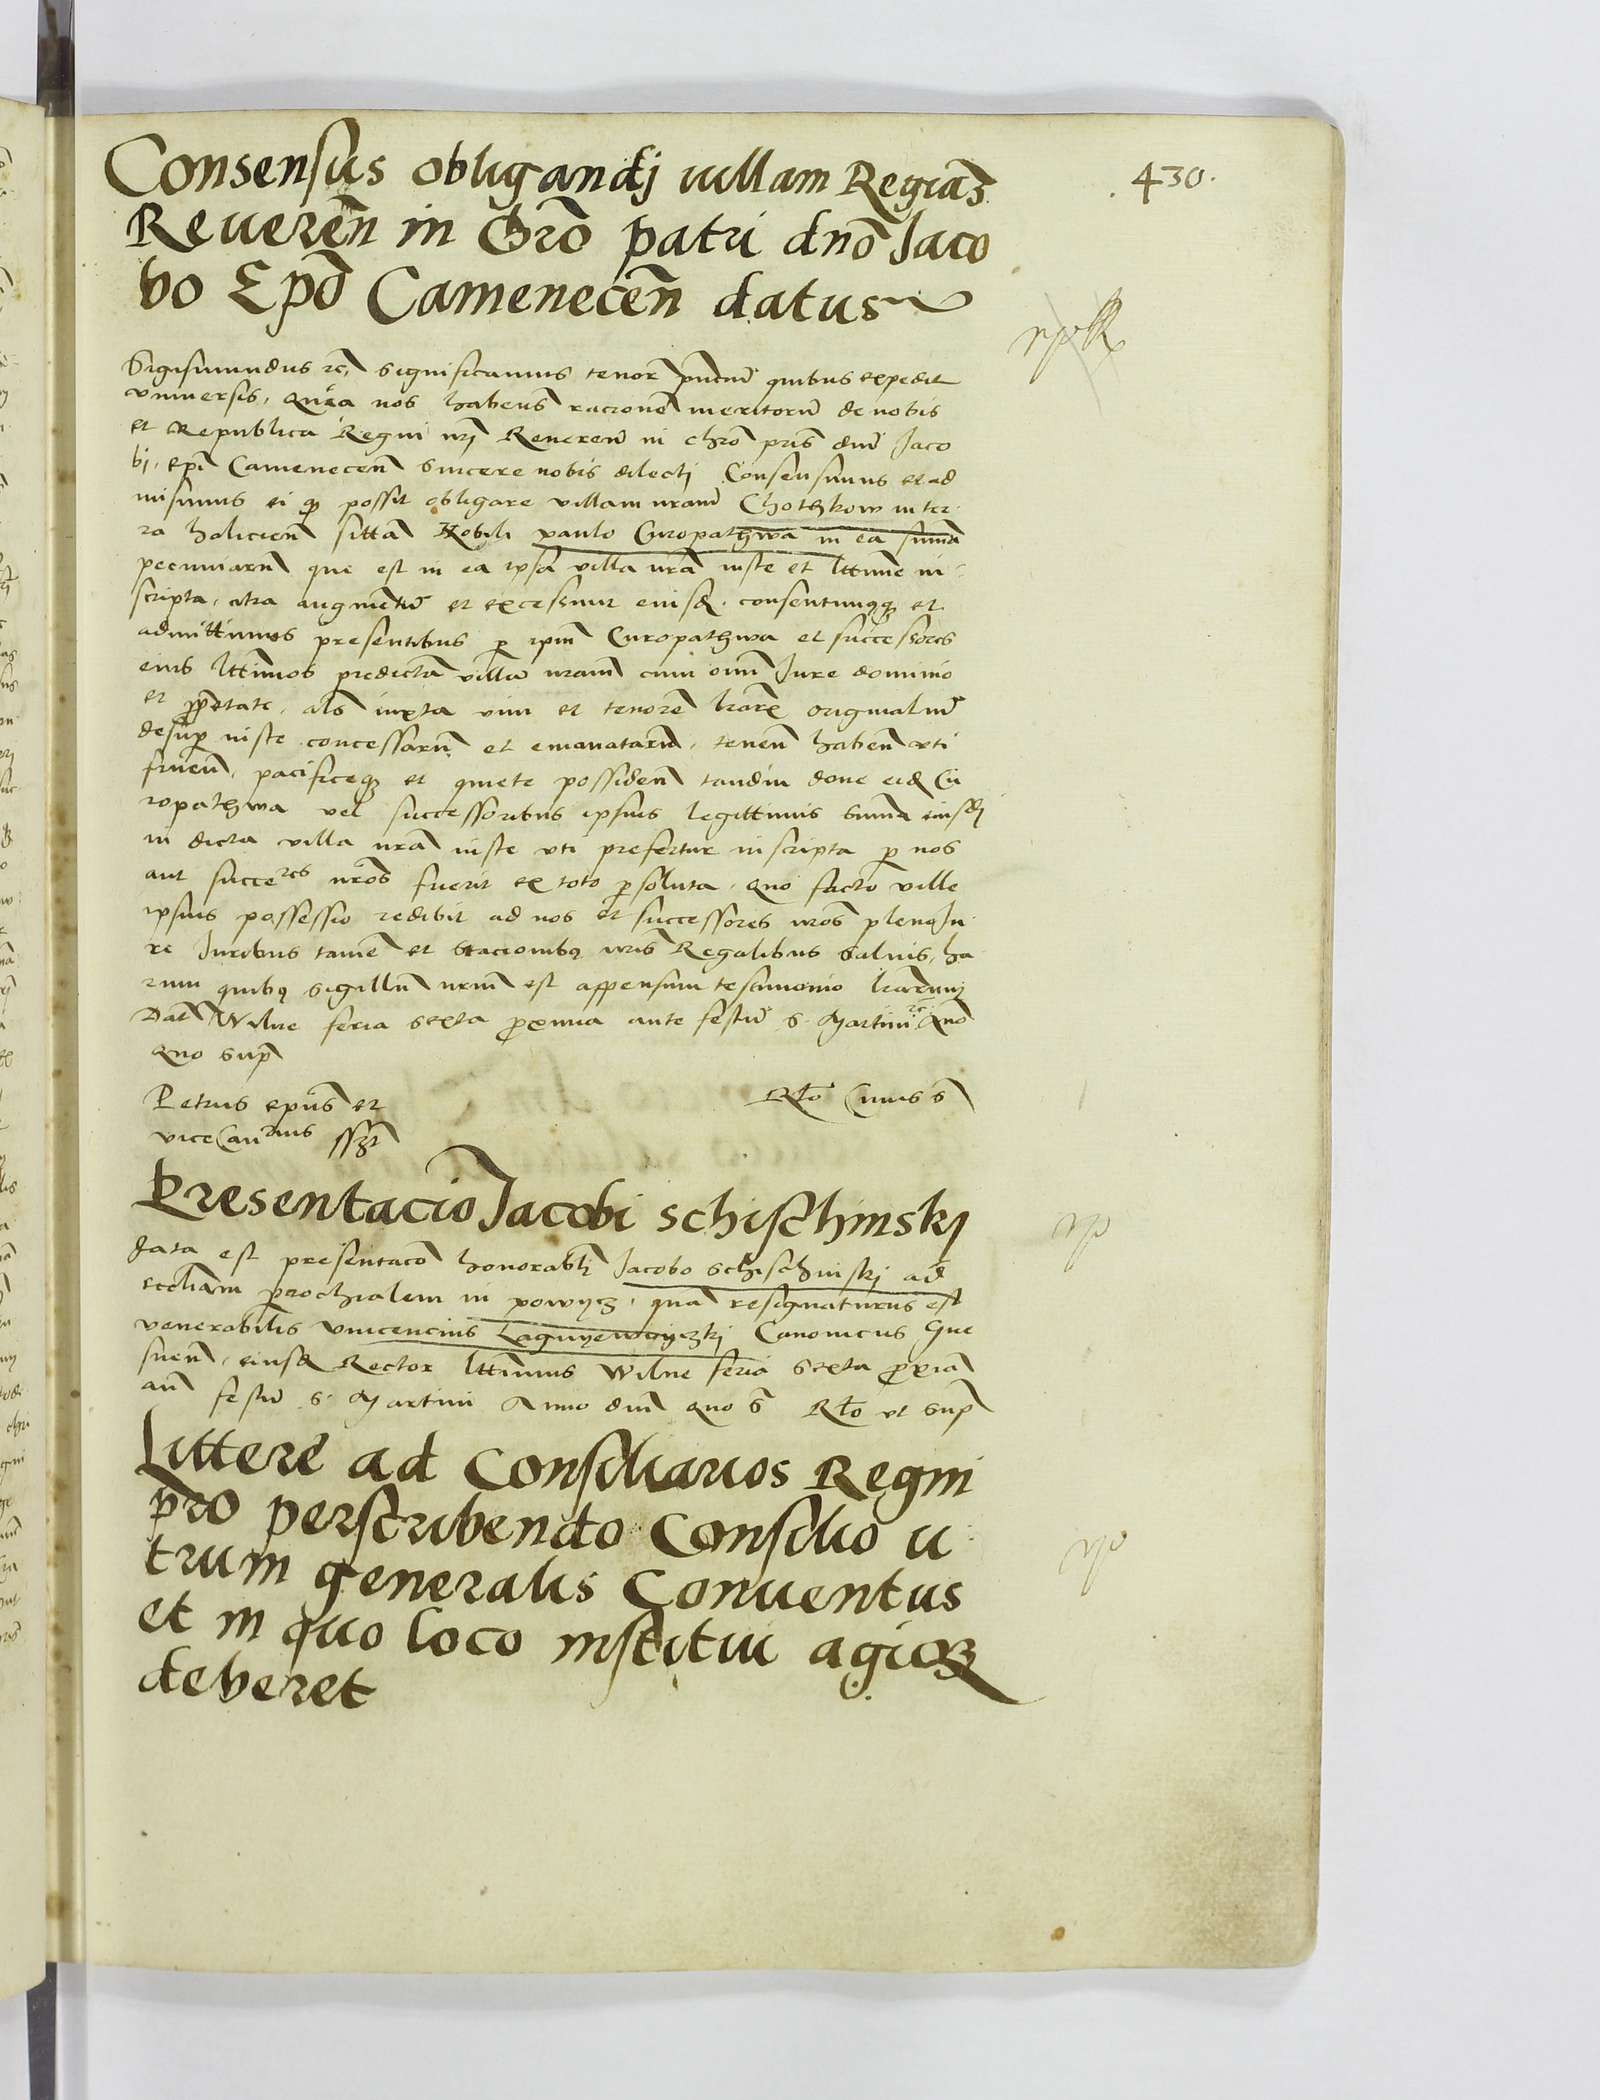 430.
Consensus obligandj uillam Regiaʒ
Reueren̄ in Chr̄o patri dn̄o Jaco
bo Ep̄o Camenecen̄ datus
Sigismundus ꝛc̄, significamus tenor̄ pn̄tiū quibus expedit
vniuersis, Quia nos habens̄ racionem̄ meritorū de nobis
et Republica Regni nr̄j Reueren̄ in chr̄o pr̄is dn̄i Jaco
bj, ep̄i Camenecen̄ sincere nobis dilecti Consensimus et ad
misimus ei ꝙ possit obligare villam nram̄ Chothkow in ter
ra halicien̄ sittam̄ Nobili paulo Curopathwa in ea summa
pecuniarū que est in ea ipsa villa nrā iuste et l̄ttime in
scripta, citra augmentū et excessum eiusd̄. consentimꝰqꝫ et
admittimus presentibus ꝑ ipm̄ Curopathwa et successores
eius l̄ttimos predictā villā nram̄ cum omī Jure dominio
et ꝓprietate, al̄s iuxta vim et tenorem̄ l̄rarꝝ originaliū
desuꝑ iuste concessarū et emanatarū, tenen̄ haben̄ vti
fruen̄, pacificeqꝫ et quiete possiden̄ tamdiu donec eid̄ Cu
ropathwa vel successoribus ipsius legittimis summa eiusd̄j
in dicta villa nrā iuste vti prefertur inscripta ꝑ nos
aut succeres nr̄os fuerit ex toto ꝑsoluta. Quo facto ville
ipsius possessio redibit ad nos et successores nr̄os pleno Ju
re Juribus tamē et Stacionibꝰ nr̄is Regalibus saluis, ha
rum quibꝰ sigillū nrm̄ est appensum testimonio l̄rarum
Dat̄ Wilne feria sexta ꝓxima ante festū S. Martini ꝛc̄ Anō
Quo sup̄
Petrus epūs et
viceCanrius ssꝫt̄
Rl̄o Cuius s̄
Presentacio Jacobi schischinskj
Data est presentacō honorabl̄i Jacobo Schischinskj ad
eccl̄iam ꝑrochialem in powycz, quā resignaturus est
venerabilis vincencius Lagyewnyczkj Canonicus Gne
snen̄, eiusd̄ Rector l̄ttimus Wilne feria sexta ꝓxia
an̄ festū S. Martini Anno dn̄i quo s̄ Rl̄o ut sup̄
Littere ad Consiliarios Regni
pro perscribendo Consilio u
trum generalis Conuentus
et in quo loco institui agiqꝫ
deberet